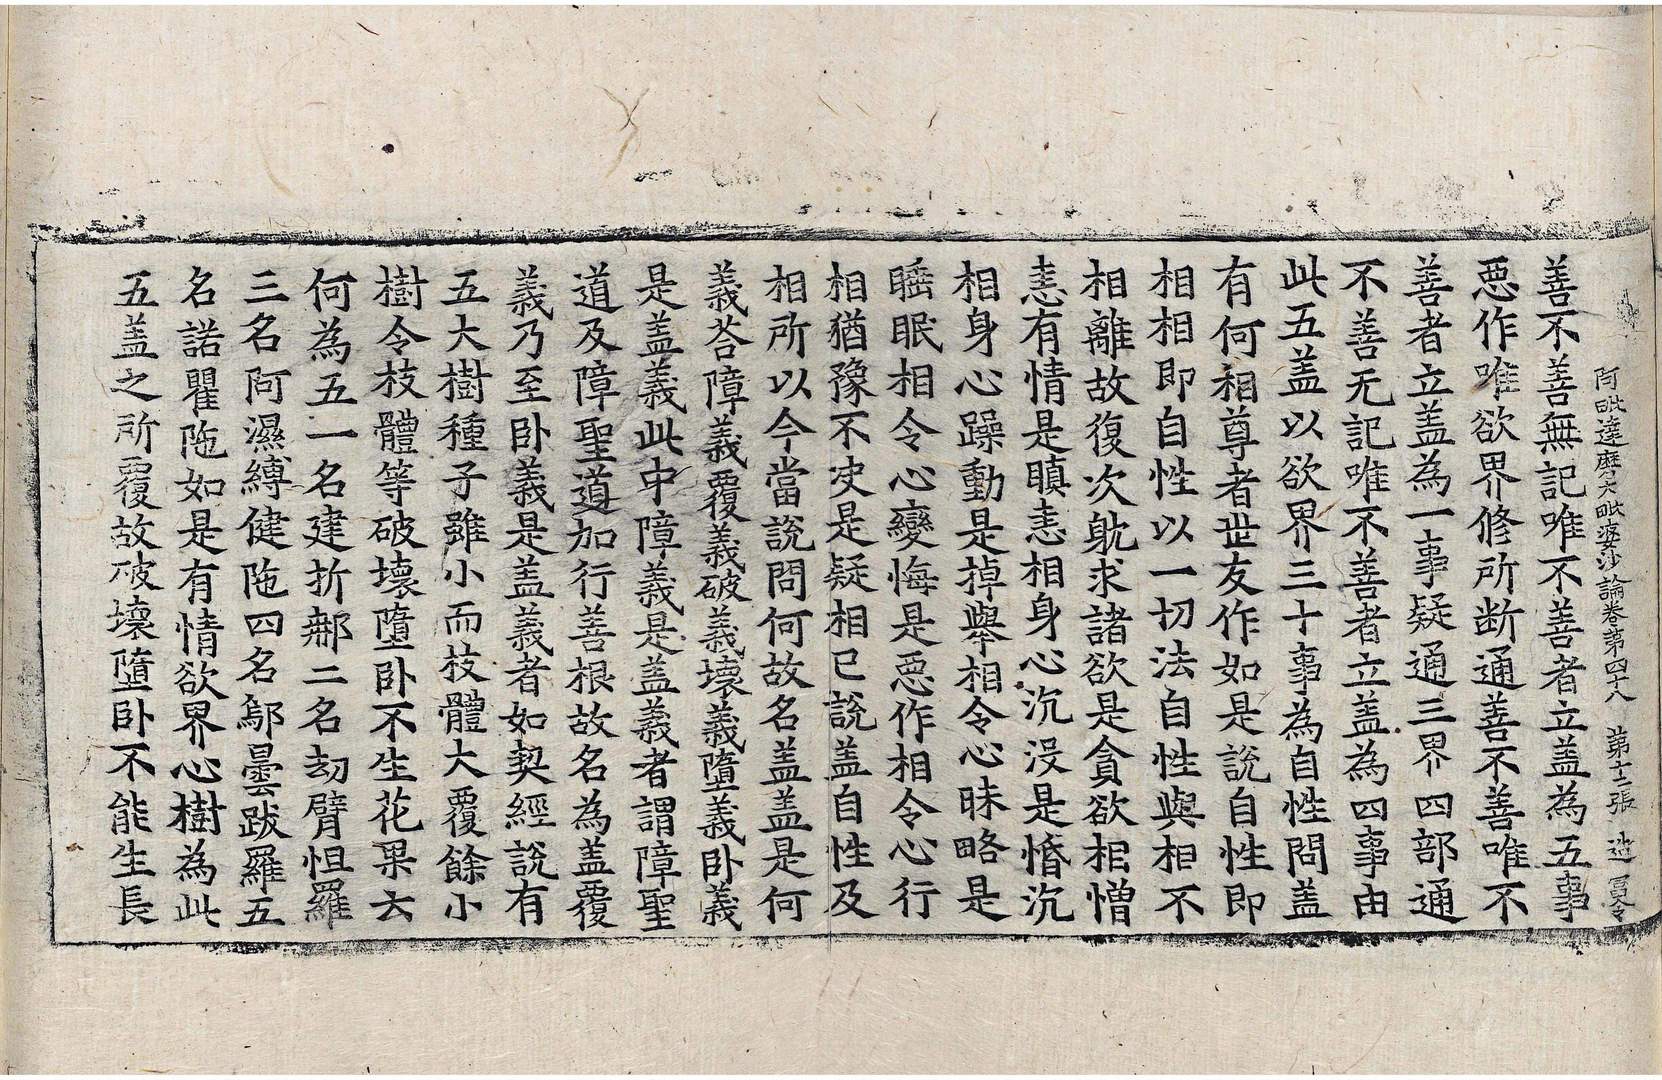 阿毗達磨大毗婆沙論卷第四十八　第十二張　造　冥令
善不善無記唯不善者立盖為五事
惡作唯欲界修所断通善不善唯不
善者立盖為一事疑通三界四部通
不善无記唯不善者立盖為四事由
此五盖以欲界三十事為自性問盖
有何相尊者世友作如是說自性即
相相即自性以一切法自性與相不
相離故復次躭求諸欲是貪欲相憎
恚有情是瞋恚相身心沉沒是惛沉
相身心躁動是掉舉相令心昧略是
睡眠相令心變悔是惡作相令心行
相猶豫不决是疑相已說盖自性及
相所以今當說問何故名盖盖是何
義荅障義覆義破義壞義墮義卧義
是盖義此中障義是盖義者謂障聖
道及障聖道加行善根故名為盖覆
義乃至卧義是盖義者如契經說有
五大樹種子雖小而枝體大覆餘小
樹令枝體等破壞墮卧不生花果云
何為五一名建折那二名劫臂怛羅
三名阿濕縛健陁四名鄔曇跋羅五
名諾瞿陁如是有情欲界心樹為此
五盖之所覆故破壞墮卧不能生長